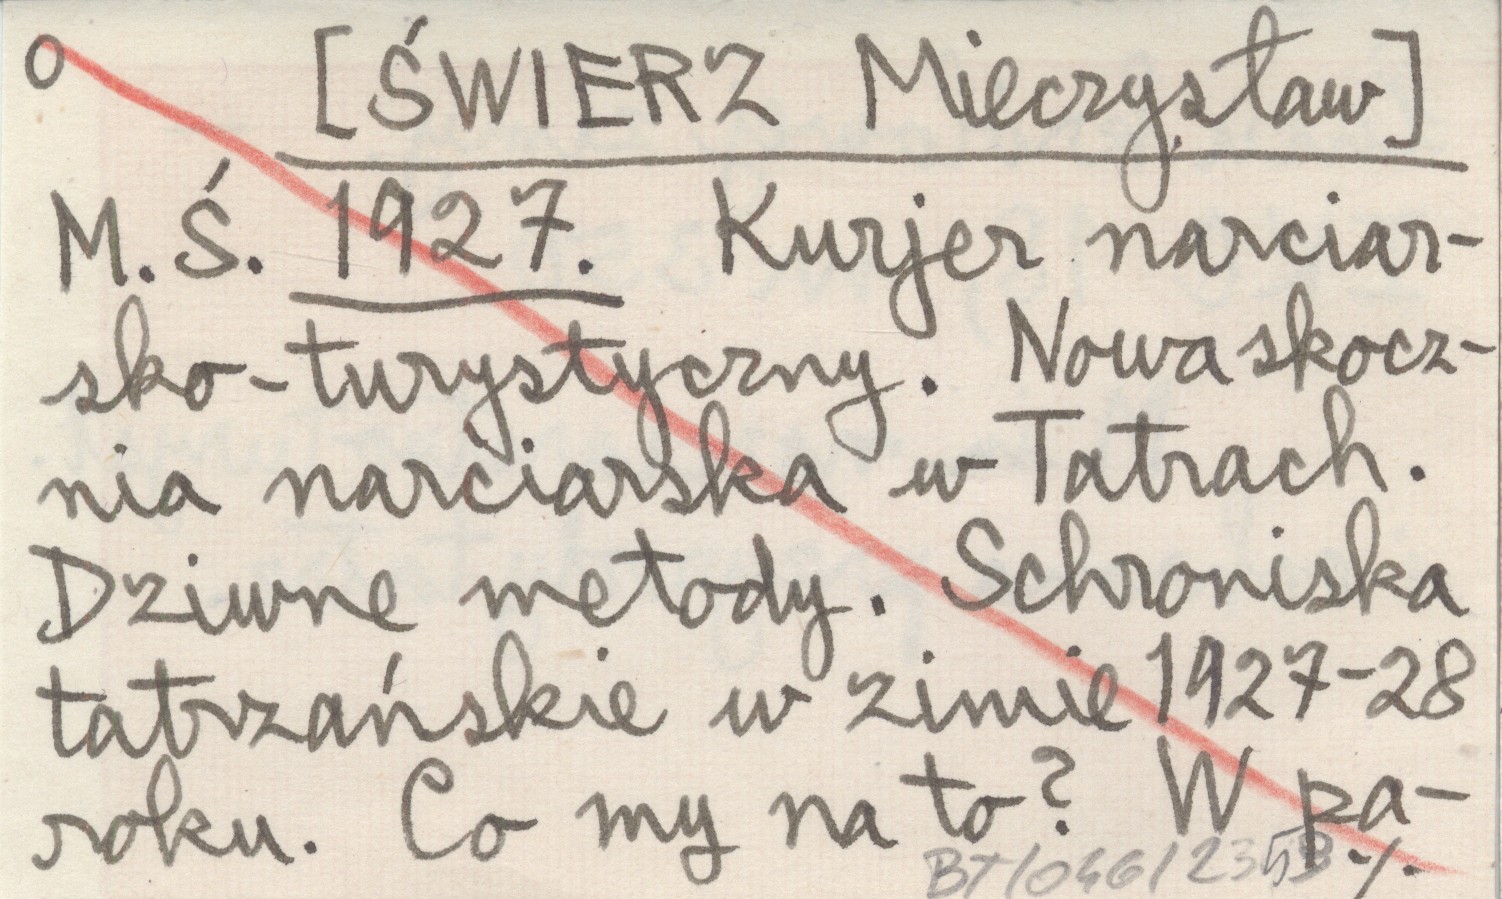 o [ŚWIERZ Mieczysław]
M.Ś. 1927. Kurjer narciar-
sko-turystyczny. Nowa skocz-
nia narciarska w Tatrach.
Dziwne metody. Schroniska
tatrzańskie w zimie 1927-28
roku. Co my na to? W pa-
./.